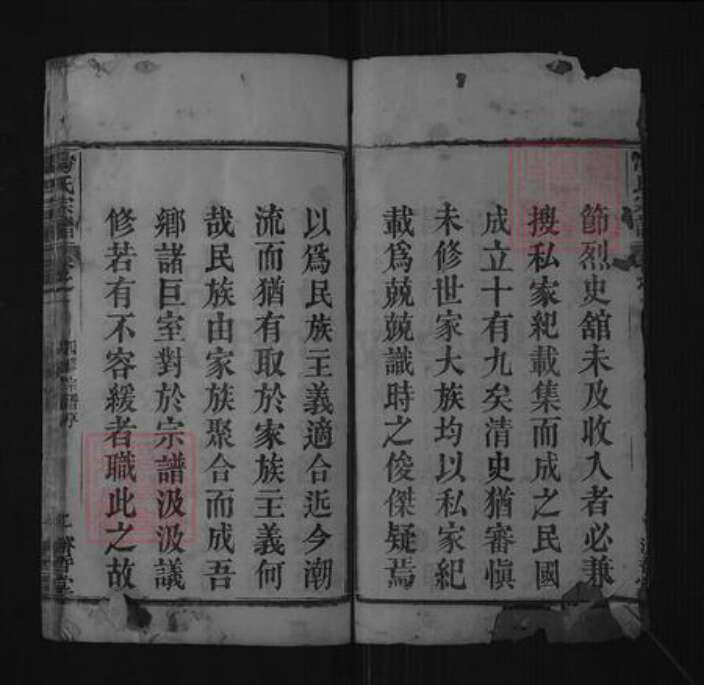 節烈史舘未及收入者必兼
搜私家紀載集而成之民國
成立十有九矣清史猶審愼
未修世家大族均以私家紀
載爲兢兢識時之俊傑疑焉
以爲民族主義適合近今潮
流而猶有取於家族主義何
哉民族由家族聚合而成吾
鄉諸巨室對於宗譜汲汲議
修若有不容緩者職此之故
氏宗譜